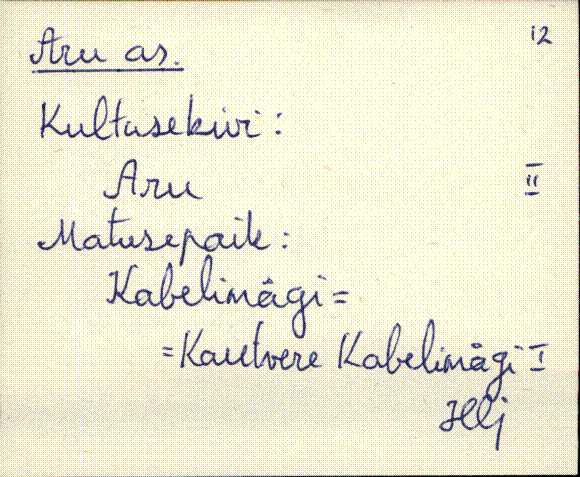 Aru as. 12
Kultusekivi:
Aru II
Matusepaik:
Kabelimägi =
= Kautvere Kabelimägi I